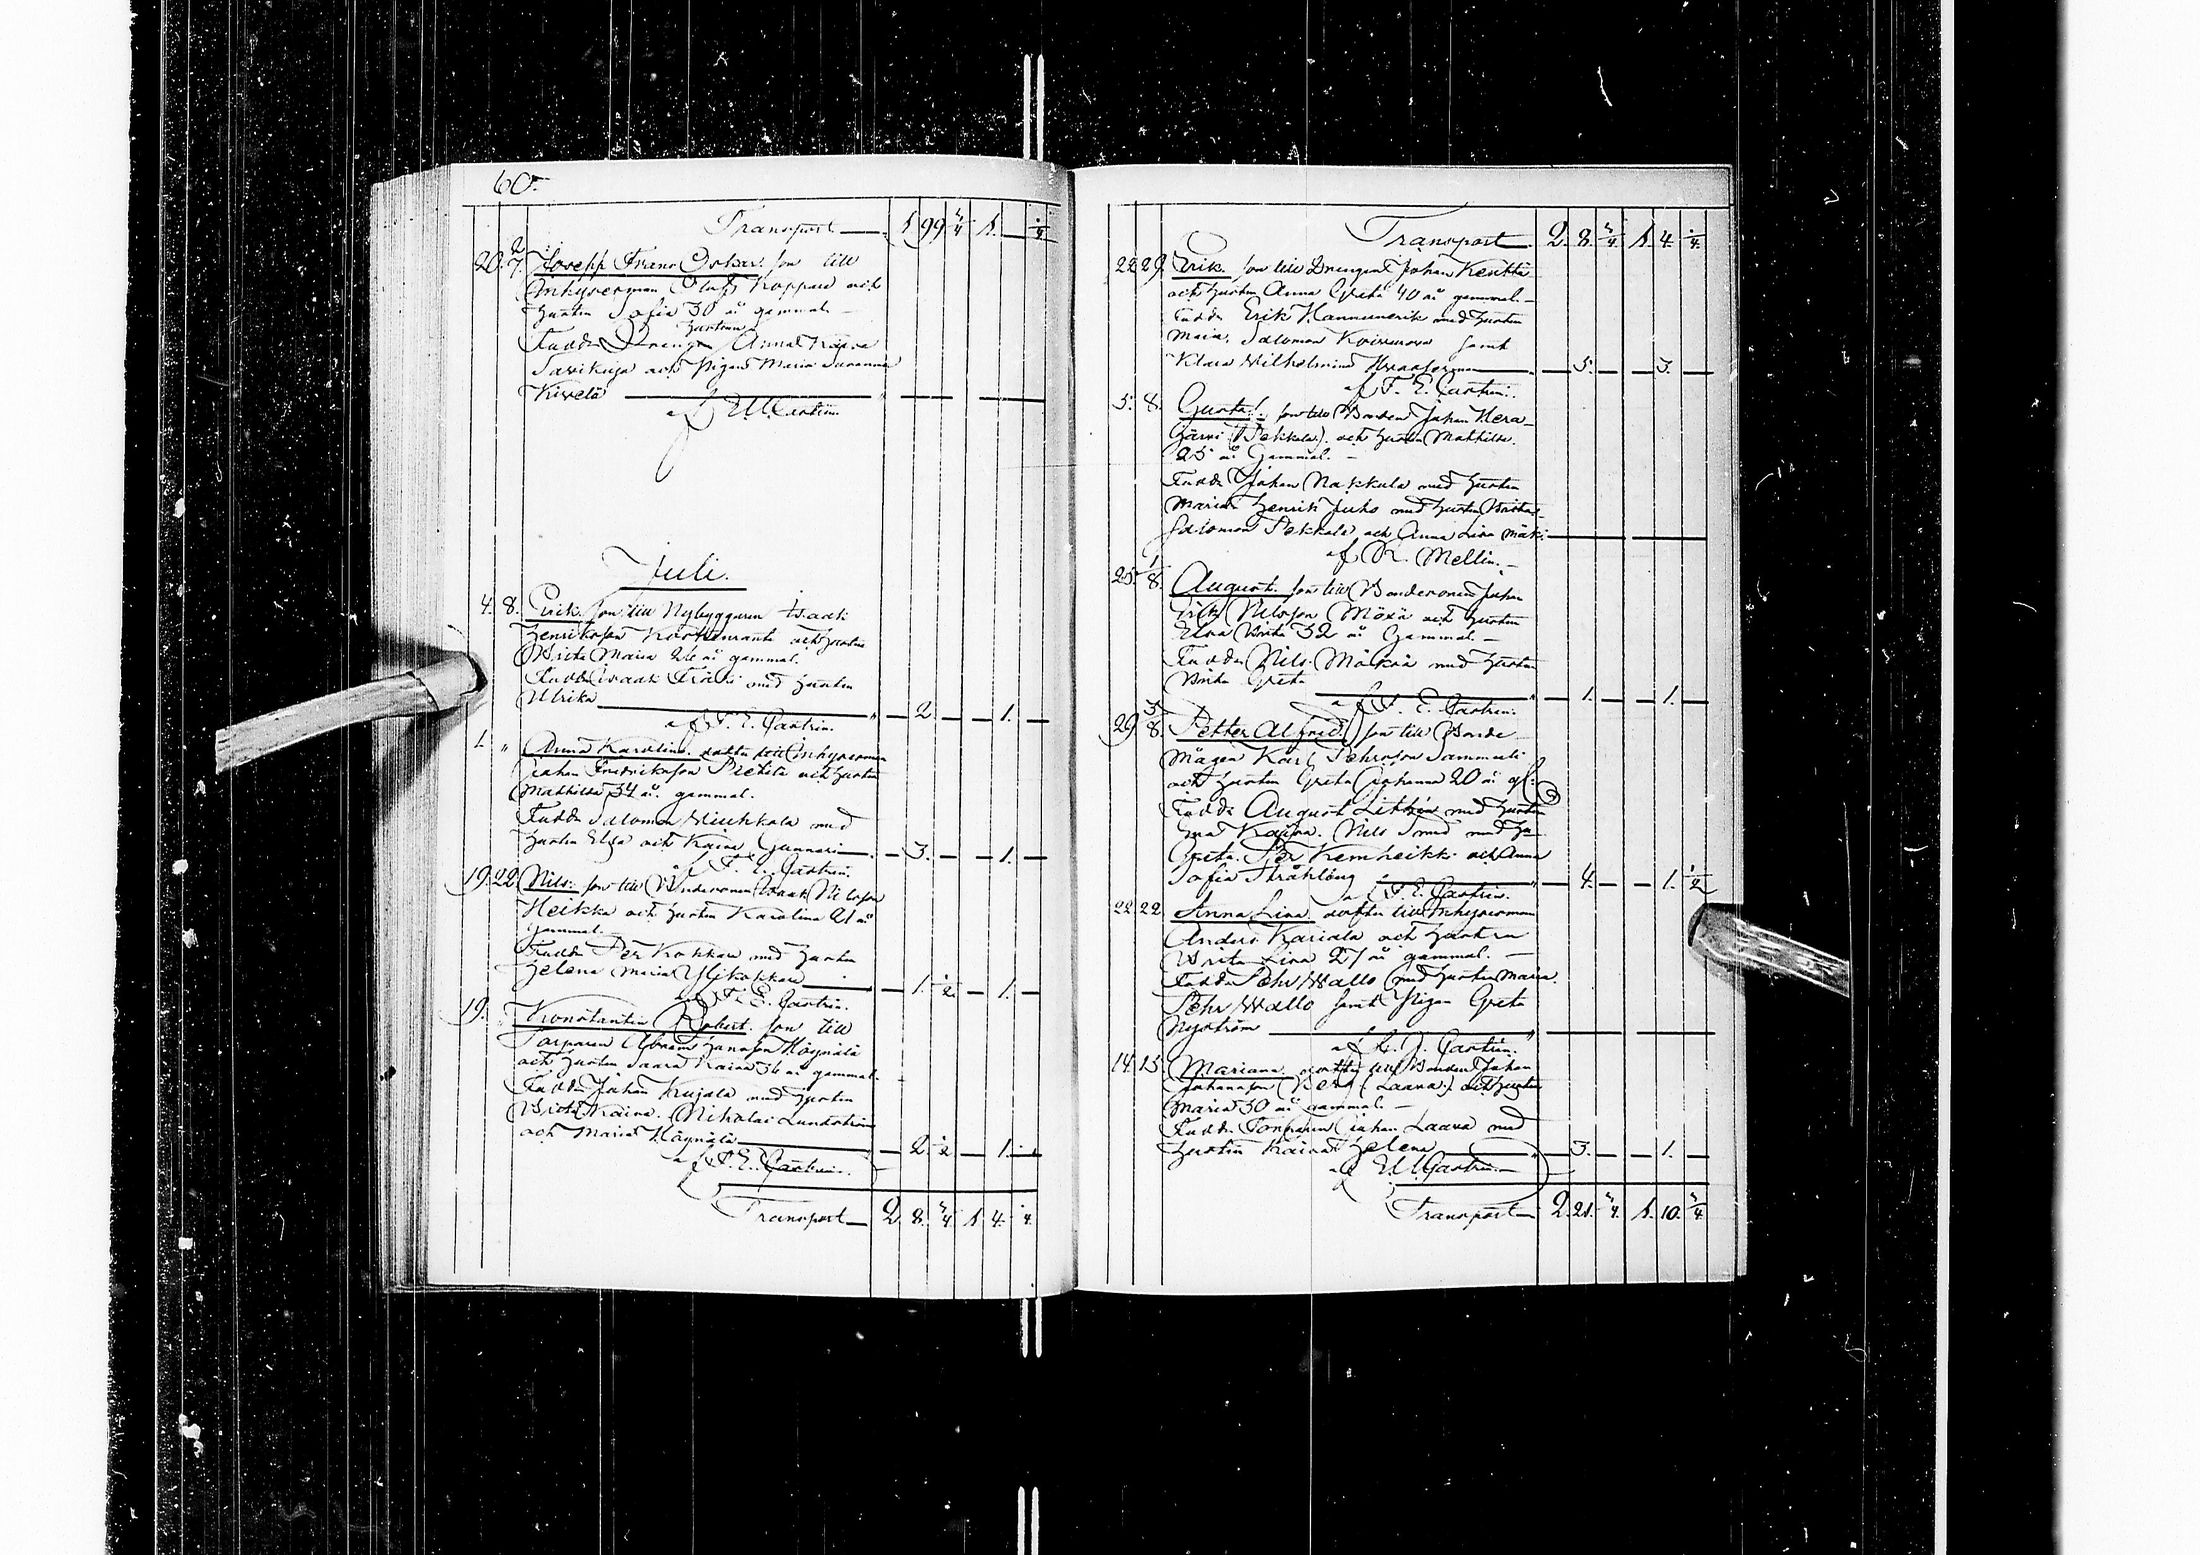 60.
Transport 1 99 3/4 1. 1/4
20. 2/7. Josepp Frans Oskar. son till
Inhyserman Olof Koppare och
hustru Sofia 30 år gammal.
hustrun
Faddr Drengen Anna Kajsa
Sarikuja och Pigan Maria Susanna
Kivelä
af E. U. Castrén.
Juli.
4. 8. Erik. son till Nybyggaren Isaak
Henriksson och hustru
Brita Maria 26 år gammal.
Faddr Isaak med hustru
Ulrika 2. 1.
af F. E. Castrén.
1. " Anna Karolina. dotter till Inhyserman
Johan Fredriksson Pietilä och hustru
Mathilda 34 år. gammal.
Faddr Salomon Niuhkala med
hustru Elsa och Kaisa Gunnari 3. 1.
af F. E. Castrén.
19. 22 Nils. son till Bondesonen Isaak Nilsson
Heikka och hustru Karolina 21 år
gammal.
Faddr Per Kokkare med hustru
Helena Maria Ylikokkare 1. 1/2 1.
af F. E. Castrén.
19. " Konstantin Robert. son till
Torparen Abram Hansson Höynälä
och hustru Saara Kaisa 36 år gammal.
Faddr Johan Kujala med hustru
Brita Kaisa. Nikolai Lundström
och Maria Höynälä 2. 1/2 1.
af F. E. Castrén.
Transport 2. 8. 3/4 1. 4. 1/4
Transport 2. 8. 3/4 1. 4. 1/4
22 29. Erik. son till Drengen Johan Kenttä
och hustru Anna Greta 40 år gammal.
Faddr Erik Hannunerik med hustru
Maria. Salomon Koivurova samt
Klara Wilhelmina 5. 3.
af F. E. Castrén.
5. 8. Gustaf. son till Bonden Johan Hera-
järvi (Pekkala). och hustru Mathilda.
25 år Gammal.
Faddr Johan Nakkula med hustru
Maria Henrik Juho med hustru Brita
Salomon Pekkala och Anna Lisa Mäki
af R. Mellin.
25. 1/8. August. son till Bondesonen Johan
Erik Nilsson Möxä och hustru
Elsa Brita 32 år Gammal.
Faddr Nils Möksä med hustru
Brita Greta 1. 1.
af F. E. Castrén.
29 3/8. Petter Alfred. son till Bonde
Mågen Karl Pehrsson Sammeli
och hustru Greta Johanna 20 år gl.
Faddr August Lithén med hustru
Eva Kaisa. Nils Smed med hu
Greta. Per Kemheikki och Anna
Sofia Stråhlöng 4. 1. 1/2
af F. E. Castrén.
22. 22 Anna Lisa. dotter till Inhyserman
Anders Kariala och hustru
Brita Lisa 27 år gammal.
Faddr Pehr Wallo med hustru Maria.
Pehr Wallo samt Pigan Greta
Nyström
Castrén.
14. 15. Mariana dotter till Bonden Johan
Johansson Berg (Laava.) och hustru
Maria 30 år gammal.
Faddr Torparen Johan Laava med
hustru Kaisa Helena 3. 1.
af E. U. Castrén.
Transport 2. 21. 3/4 1. 10. 3/4